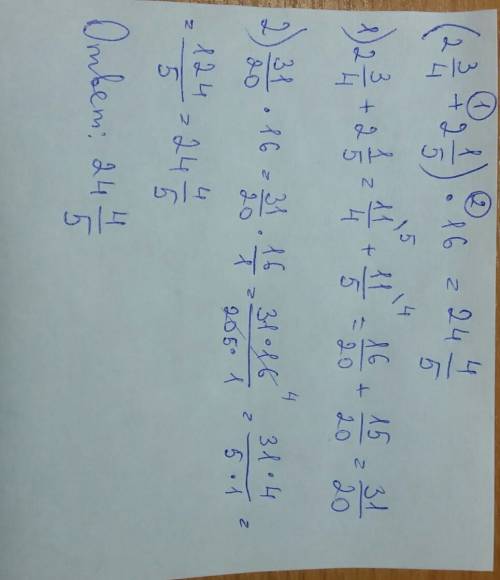 ① ②
(2 3/4 + 2 1/5) · 16 = 24 4/5
1) 2 3/4 + 2 1/5 = 11/4 \5 + 11/5 \4 = 16/20 + 15/20 = 31/20
2) 31/20 · 16 = 31/20 · 16/1 = 31 · 16 4/20 5 · 1 = 31 · 4/5 · 1 =
= 124/5 = 24 4/5
Ответ: 24 4/5